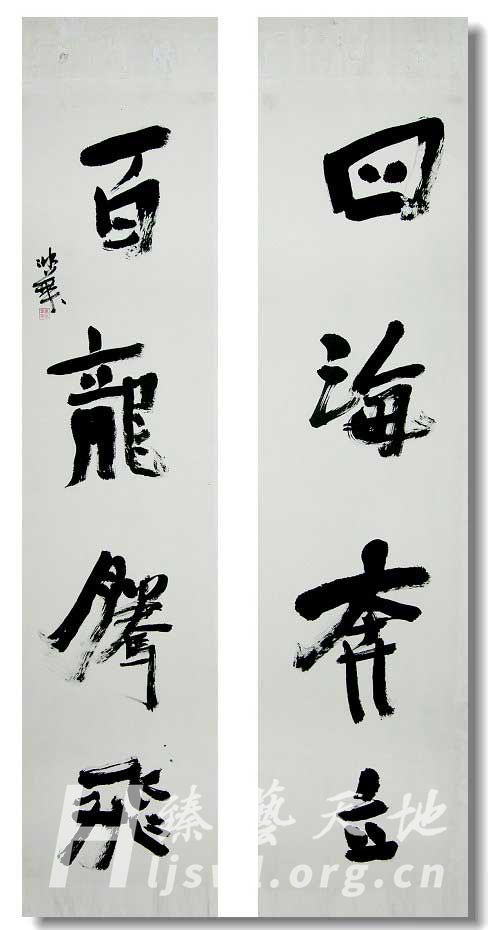 四海奔立
百龍騰飛
臻藝天地
ljswl.org.cn